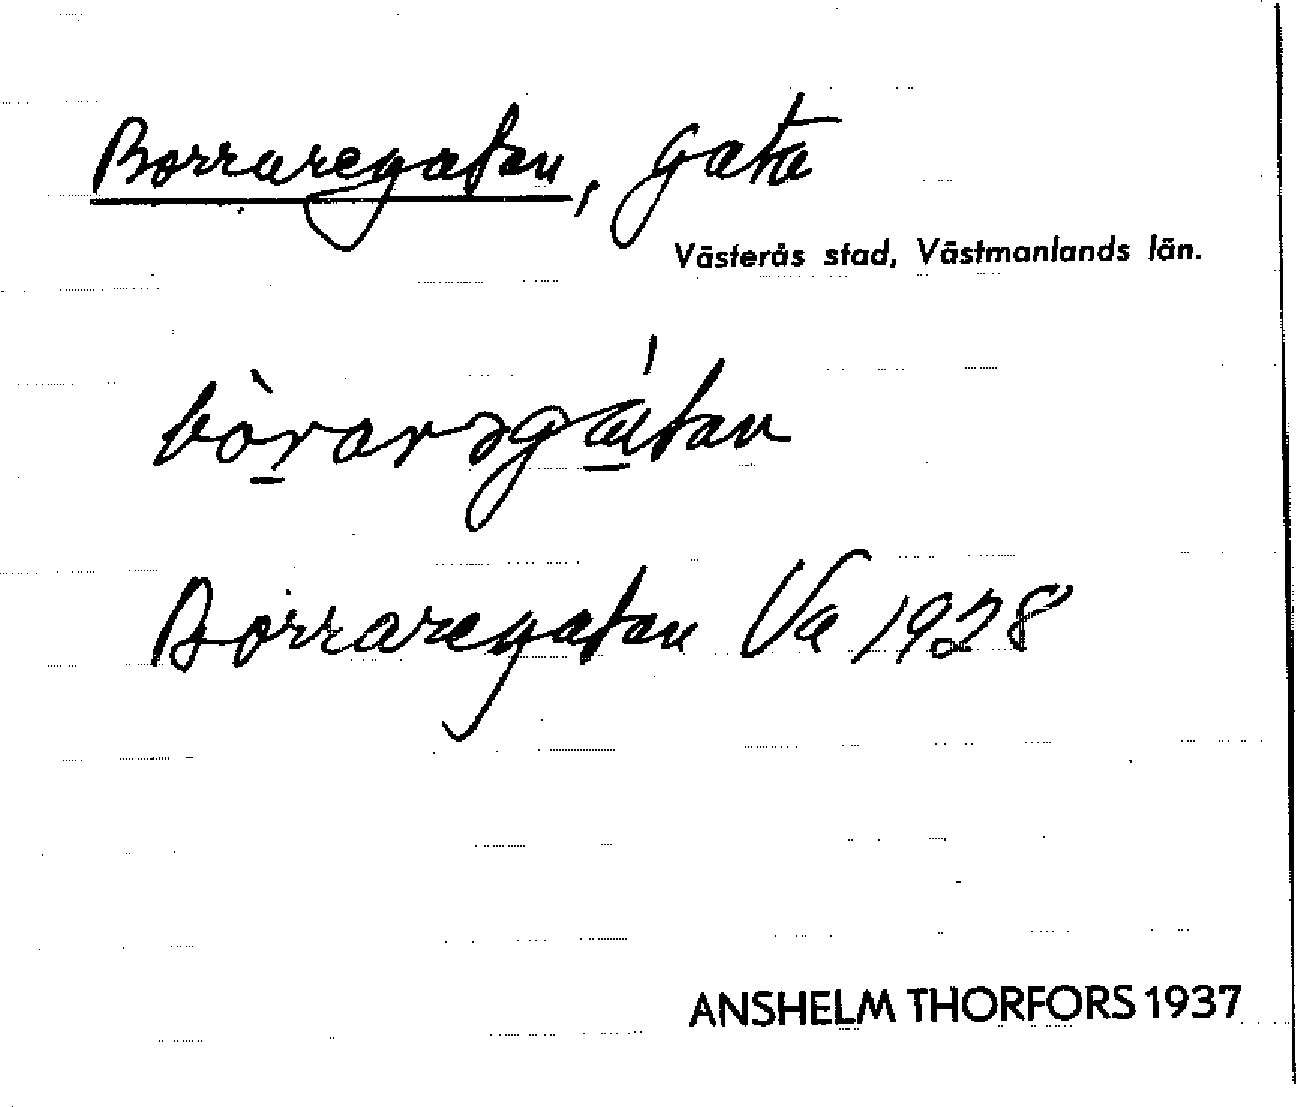 Borraregatan, gata
Västerås stad, Västmanlands län.
Borraregatan Va 1928
ANSHELM THORFORS 1937